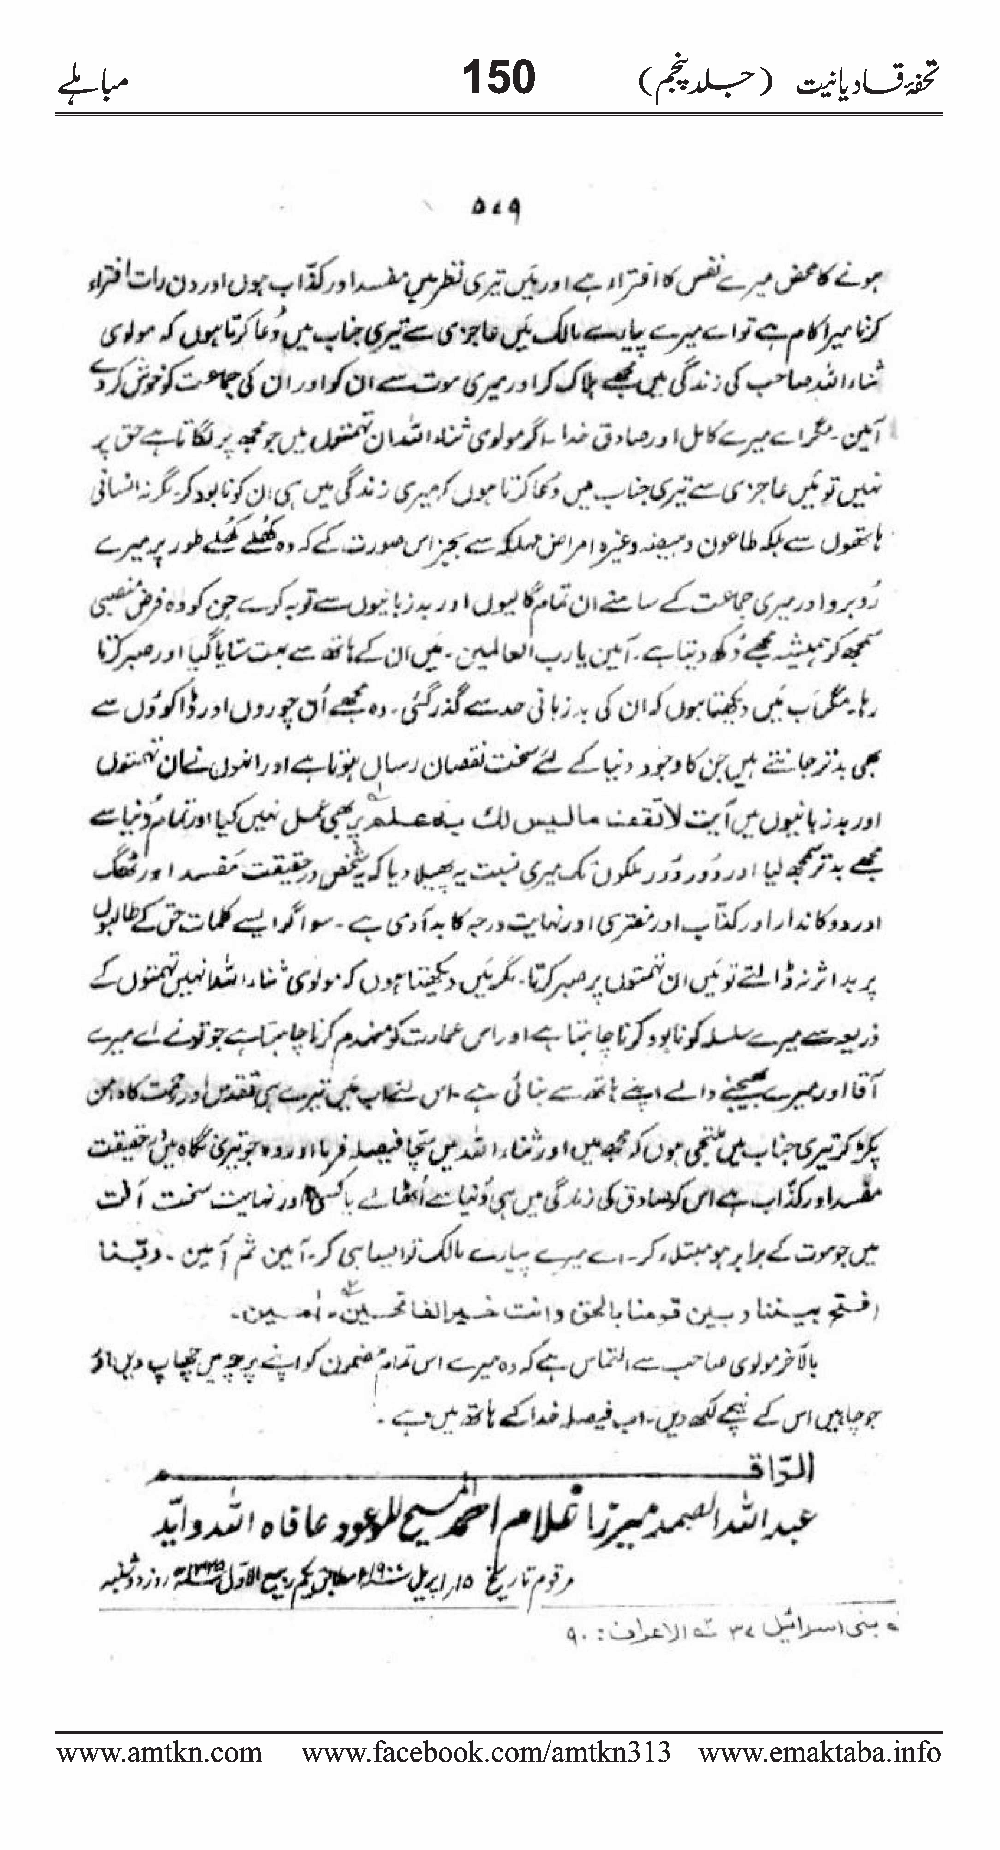 تحفۂ قادیانیت (جلد پنجم) 150 مباہلے
۵۷۹
ہونے کا محض میرے نفس کا افتراء ہے اور میں تیری نظر میں مفسد اور کذّاب ہوں اور دن رات افتراء
کرنا میرا کام ہے تو اے میرے پیارے مالک میں عاجزی سے تیری جناب میں دُعا کرتا ہوں کہ مولوی
ثناء اللہ صاحب کی زندگی میں مجھے ہلاک کر اور میری موت سے ان کو اور ان کی جماعت کو خوش کر دے
آمین۔ مگر اے میرے کامل اور صادق خدا۔ اگر مولوی ثناء اللہ ان تہمتوں میں جو مجھ پر لگاتا ہے حق پر
نہیں تو میں عاجزی سے تیری جناب میں دُعا کرتا ہوں کہ میری زندگی میں ہی ان کو نابود کر۔ مگر نہ انسانی
ہاتھوں سے بلکہ طاعون و ہیضہ وغیرہ امراض مہلکہ سے بجز اس صورت کے کہ وہ کھُلے کھُلے طور پر میرے
رُوبرو اور میری جماعت کے سامنے ان تمام گالیوں اور بدزبانیوں سے توبہ کرے جن کو وہ فرض منصبی
سمجھ کر ہمیشہ مجھے دُکھ دیتا ہے۔ آمین یا رب العالمین۔ میں ان کے ہاتھ سے بہت ستایا گیا اور صبر کرتا
رہا۔ مگر اب میں دیکھتا ہوں کہ ان کی بدزبانی حد سے گذر گئی۔ وہ مجھے اُن چوروں اور ڈاکوؤں سے
بھی بدتر جانتے ہیں جن کا وجود دنیا کے لئے سخت نقصان رساں ہوتا ہے اور انہوں نے ان تہمتوں
اور بدزبانیوں میں آیت لا تقف ما لیس لك به علم پر بھی عمل نہیں کیا اور تمام دُنیا سے
مجھے بدتر سمجھ لیا اور دُور دُور ملکوں تک میری نسبت یہ پھیلا دیا کہ یہ شخص درحقیقت مُفسد اور ٹھگ
اور دوکاندار اور کذّاب اور مفتری اور نہایت درجہ کا بد آدمی ہے۔ سو اگر ایسے کلمات حق کے طالبوں
پر بد اثر نہ ڈالتے تو میں ان تہمتوں پر صبر کرتا۔ مگر میں دیکھتا ہوں کہ مولوی ثناء اللہ انہیں تہمتوں کے
ذریعہ سے میرے سلسلہ کو نابود کرنا چاہتا ہے اور اس عمارت کو منہدم کرنا چاہتا ہے جو تونے اے میرے
آقا اور میرے بھیجنے والے اپنے ہاتھ سے بنائی ہے۔ اس لئے اب میں تیرے ہی تقدس اور رحمت کا دامن
پکڑ کر تیری جناب میں ملتجی ہوں کہ مجھ میں اور ثناء اللہ میں سچّا فیصلہ فرما اور وہ جو تیری نگاہ میں حقیقت
مفسد اور کذّاب ہے اس کو صادق کی زندگی میں ہی دُنیا سے اُٹھا لے یا کسی اور نہایت سخت آفت
میں جو موت کے برابر ہو مبتلاء کر۔ اے میرے پیارے مالک تو ایسا ہی کر۔ آمین ثم آمین۔ ربّنا
افتح بیننا وبین قومنا بالحق وانت خیر الفاتحین۔ اٰمین۔
بالآخر مولوی صاحب سے التماس ہے کہ وہ میرے اس تمام مضمون کو اپنے پرچہ میں چھاپ دیں اور
جو چاہیں اس کے نیچے لکھ دیں۔ اب فیصلہ خدا کے ہاتھ میں ہے۔
الرّاقم
عبد اللہ الصمد میرزا غلام احمد المسیح الموعود عافاہ اللہ وایّد
مرقوم تاریخ ۱۵؍ اپریل ۱۹۰۷ء مطابق یکم ربیع الاوّل ۱۳۲۵ھ روز دوشنبہ
بنی اسرائیل ۳۷ الاعراف: ۹۰
www.amtkn.com www.facebook.com/amtkn313 www.emaktaba.info